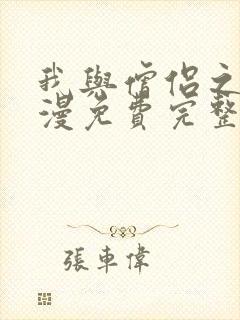 我與僧侶之
漫免費完整
張車偉